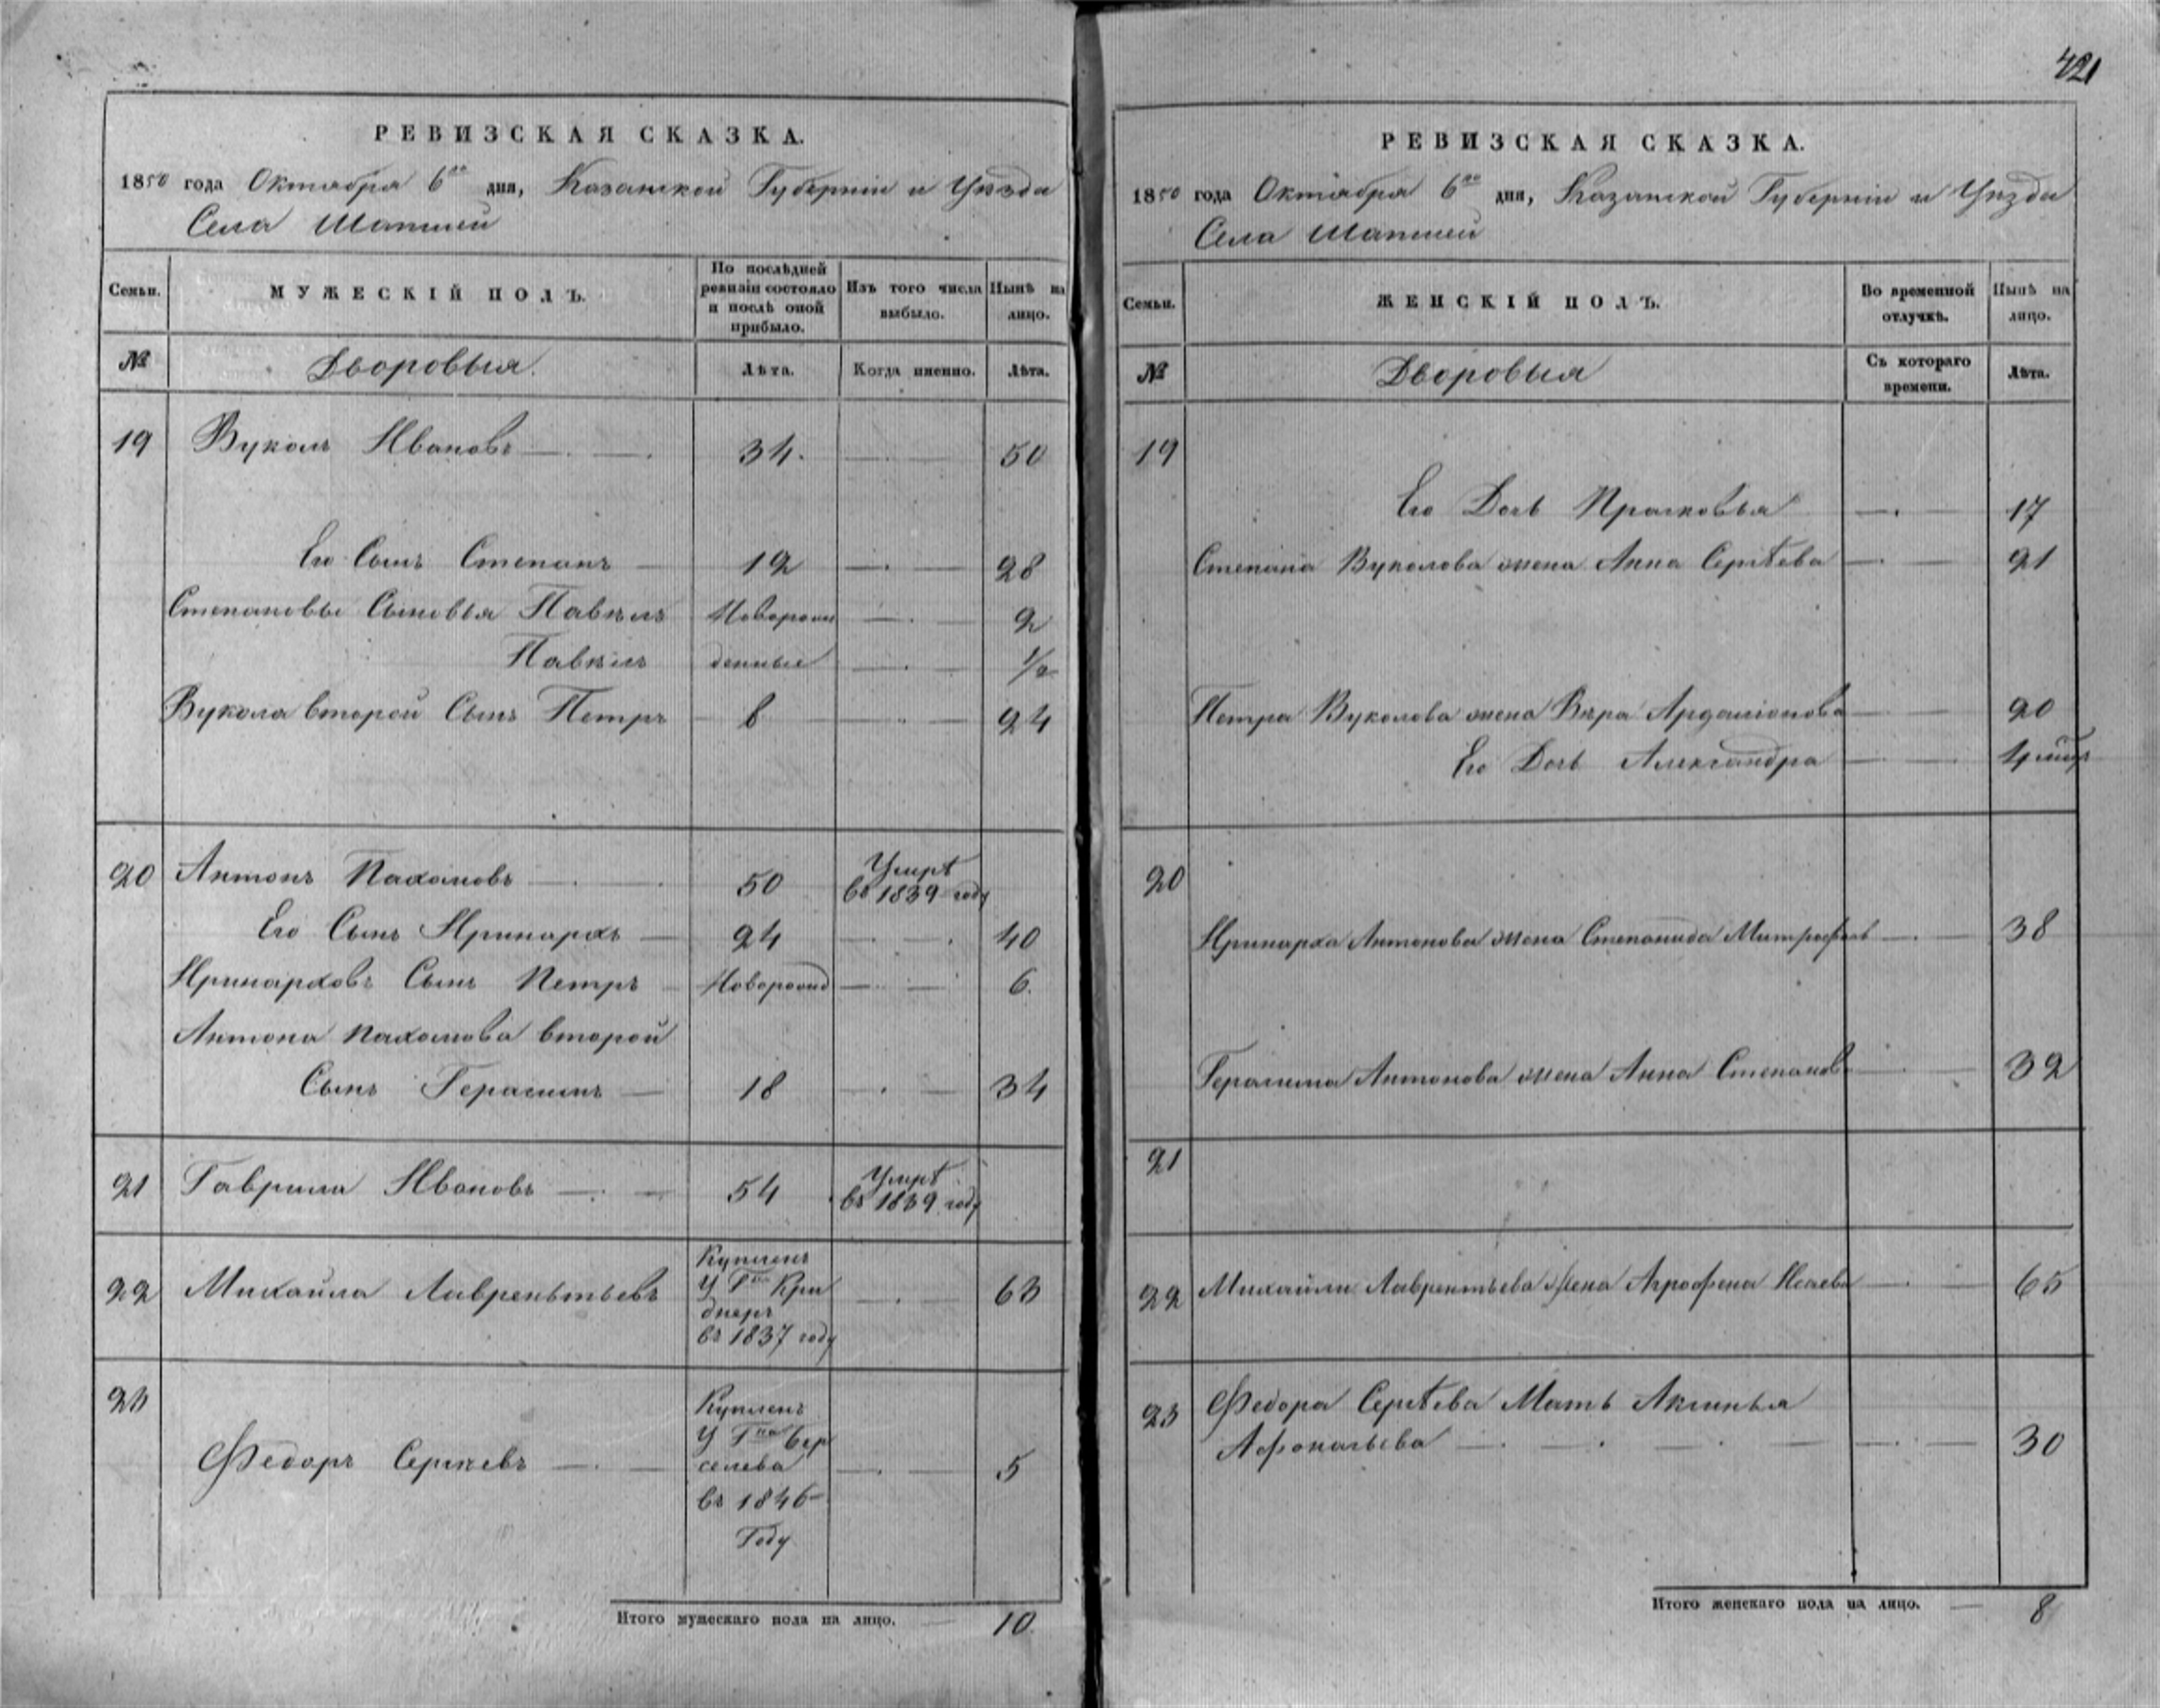 421
РЕВИЗСКАЯ СКАЗКА.
1850 года Октября 6го дня, Казанской Губерніи и Уѣзда
Села Шапшей
Семьи. МУЖЕСКІЙ ПОЛЪ. По послѣдней ревизіи состояло и послѣ оной прибыло. Изъ того числа выбыло. Нынѣ на лицо.
№ Дворовыя. Лѣта. Когда именно. Лѣта.
19 Вуколъ Ивановъ 34. 50
Его Сынъ Степанъ 12 28
Степановы Сыновья Павѣлъ Новорож 2
Павѣлъ денные 1/2
Вукола второй Сынъ Петръ 8 24
20 Антонъ Пахомовъ 50 Умрѣ въ 1839 году
Его Сынъ Иринархъ 24 40
Иринарховъ Сынъ Петръ Новорожд 6.
Антона Пахомова второй
Сынъ Герасимъ 18 34
21 Гаврила Ивановъ 54 Умрѣ въ 1839 году
22 Михайла Лаврентьевъ Купленъ У Гна Кри днеръ въ 1837 году 63
23 Федоръ Сергѣевъ Купленъ У Гна въ 1846 Году 5
Итого мужескаго пола на лицо. 10
РЕВИЗСКАЯ СКАЗКА.
1850 года Октября 6го дня, Казанской Губерніи и Уѣзда
Села Шапшей
Семьи. ЖЕНСКІЙ ПОЛЪ. Во временной отлучкѣ. Нынѣ на лицо.
№ Дворовыя Съ котораго времени. Лѣта.
19
Его Дочь Прасковья 17
Степана Вуколова жена Анна Сергѣева 21
Петра Вуколова жена Вѣра Ардаліонова 20
Его Дочь Александра 4 мѣс
20
Иринарха Антонова жена Степанида Митрофан 38
Герасима Антонова жена Анна Степанов 32
21
22 Михайлы Лаврентьева жена Агрофена Исаева 65
23 Федора Сергѣева Мать Аксинья
Афонасьева 30
Итого женскаго пола на лицо. 8